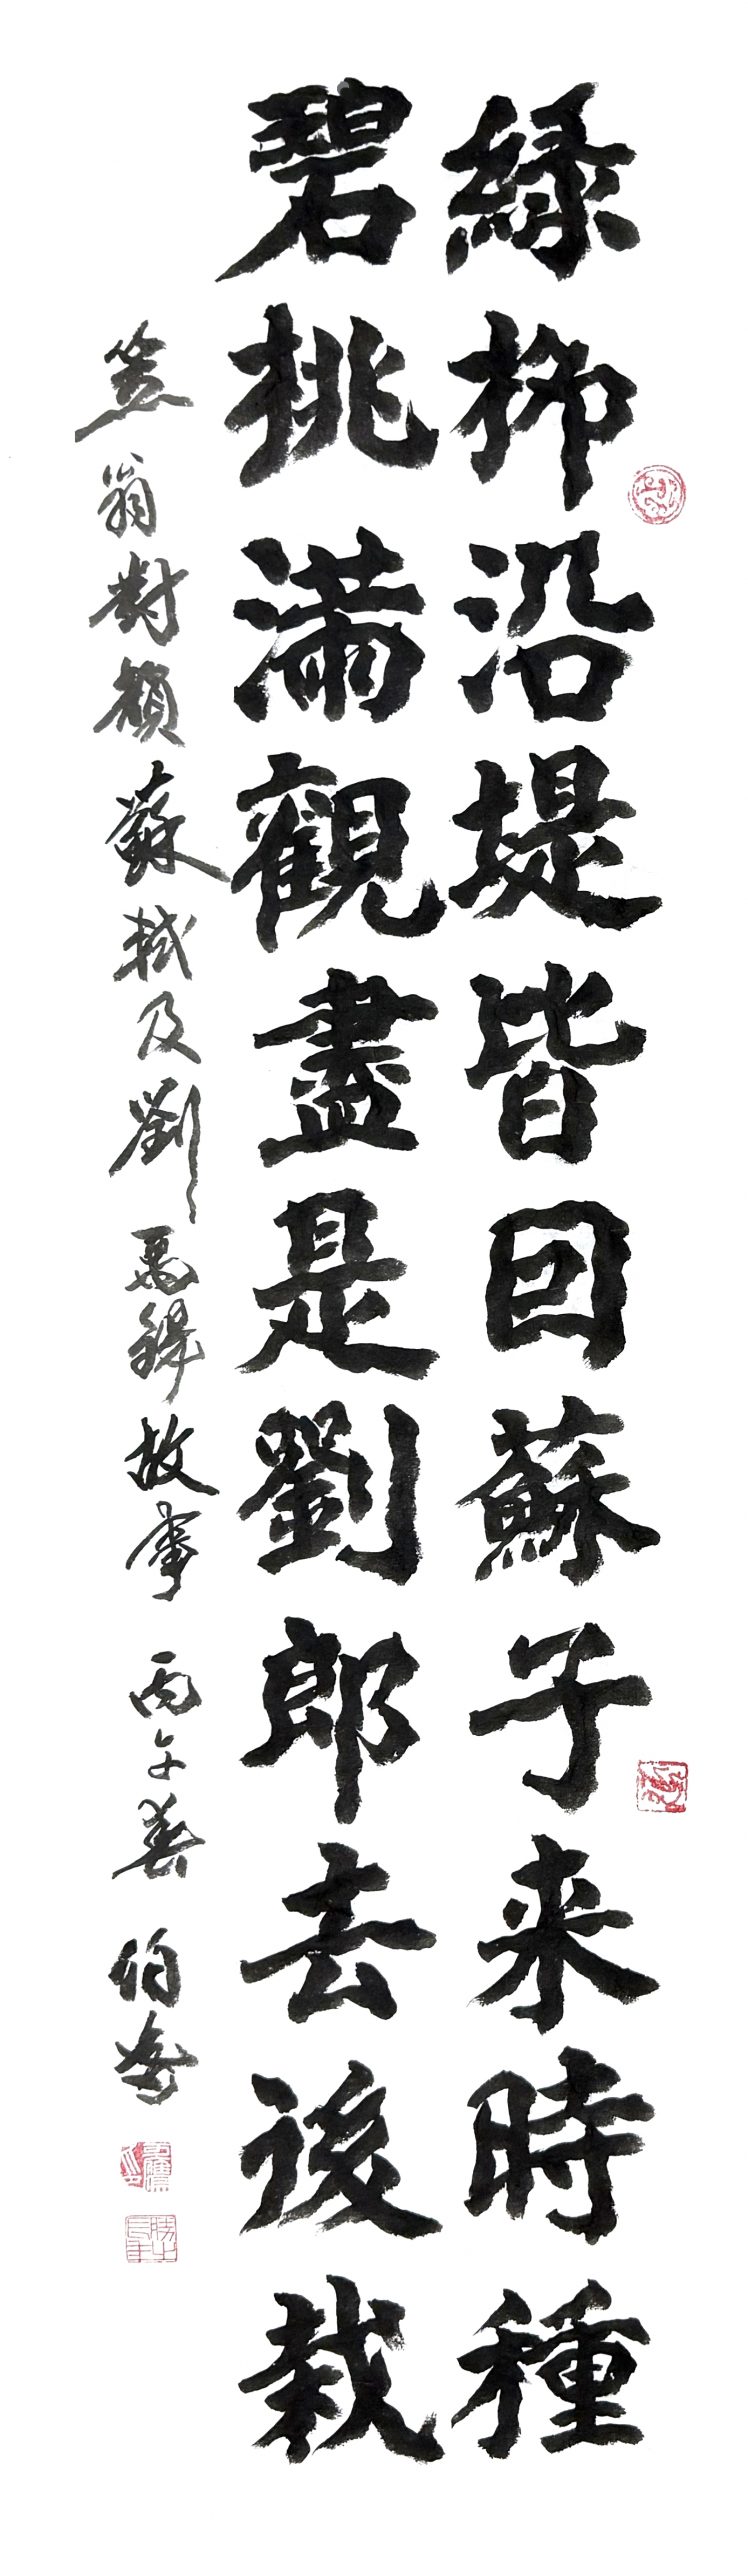 綠柳沿堤皆因蘇子来時種
碧桃滿觀盡是劉郎去後栽
笠翁對韻蘇軾及劉禹錫故事 丙午春 伯